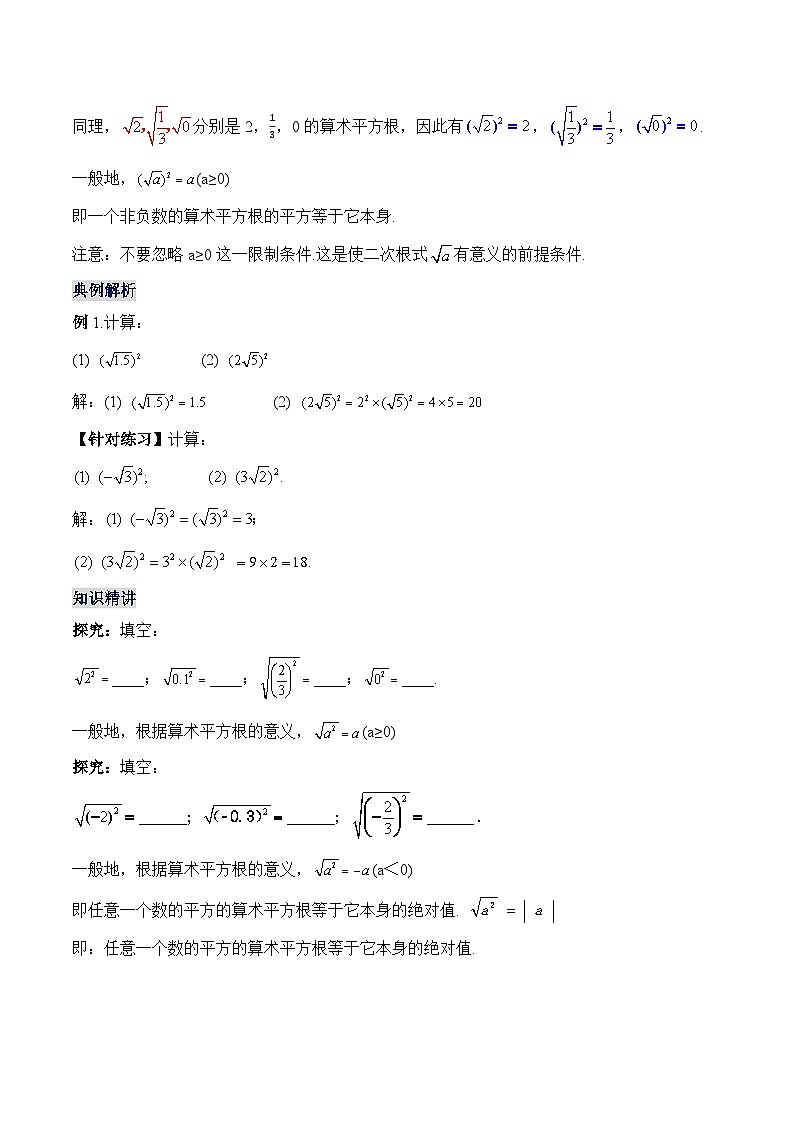 同理，√2，√(1/3)，√0分别是 2，1/3，0 的算术平方根，因此有(√2)² = 2，(√(1/3))² = 1/3，(√0)² = 0.
一般地，(√a)² = a (a≥0)
即一个非负数的算术平方根的平方等于它本身.
注意：不要忽略 a≥0 这一限制条件.这是使二次根式√a有意义的前提条件.
典例解析
例 1.计算：
(1) (√1.5)² (2) (2√5)²
解：(1) (√1.5)² = 1.5 (2) (2√5)² = 2² × (√5)² = 4 × 5 = 20
【针对练习】计算：
(1) (−√3)²; (2) (3√2)².
解：(1) (−√3)² = (√3)² = 3;
(2) (3√2)² = 3² × (√2)² = 9 × 2 = 18.
知识精讲
探究：填空：
√(2²) = ____；√(0.1²) = ____；√((2/3)²) = ____；√(0²) = ____.
一般地，根据算术平方根的意义，√(a²) = a (a≥0)
探究：填空：
√((−2)²) = ______；√((-0.3)²) = ______；√((−2/3)²) = ______.
一般地，根据算术平方根的意义，√(a²) = −a (a＜0)
即任意一个数的平方的算术平方根等于它本身的绝对值. √(a²) = | a |
即：任意一个数的平方的算术平方根等于它本身的绝对值.